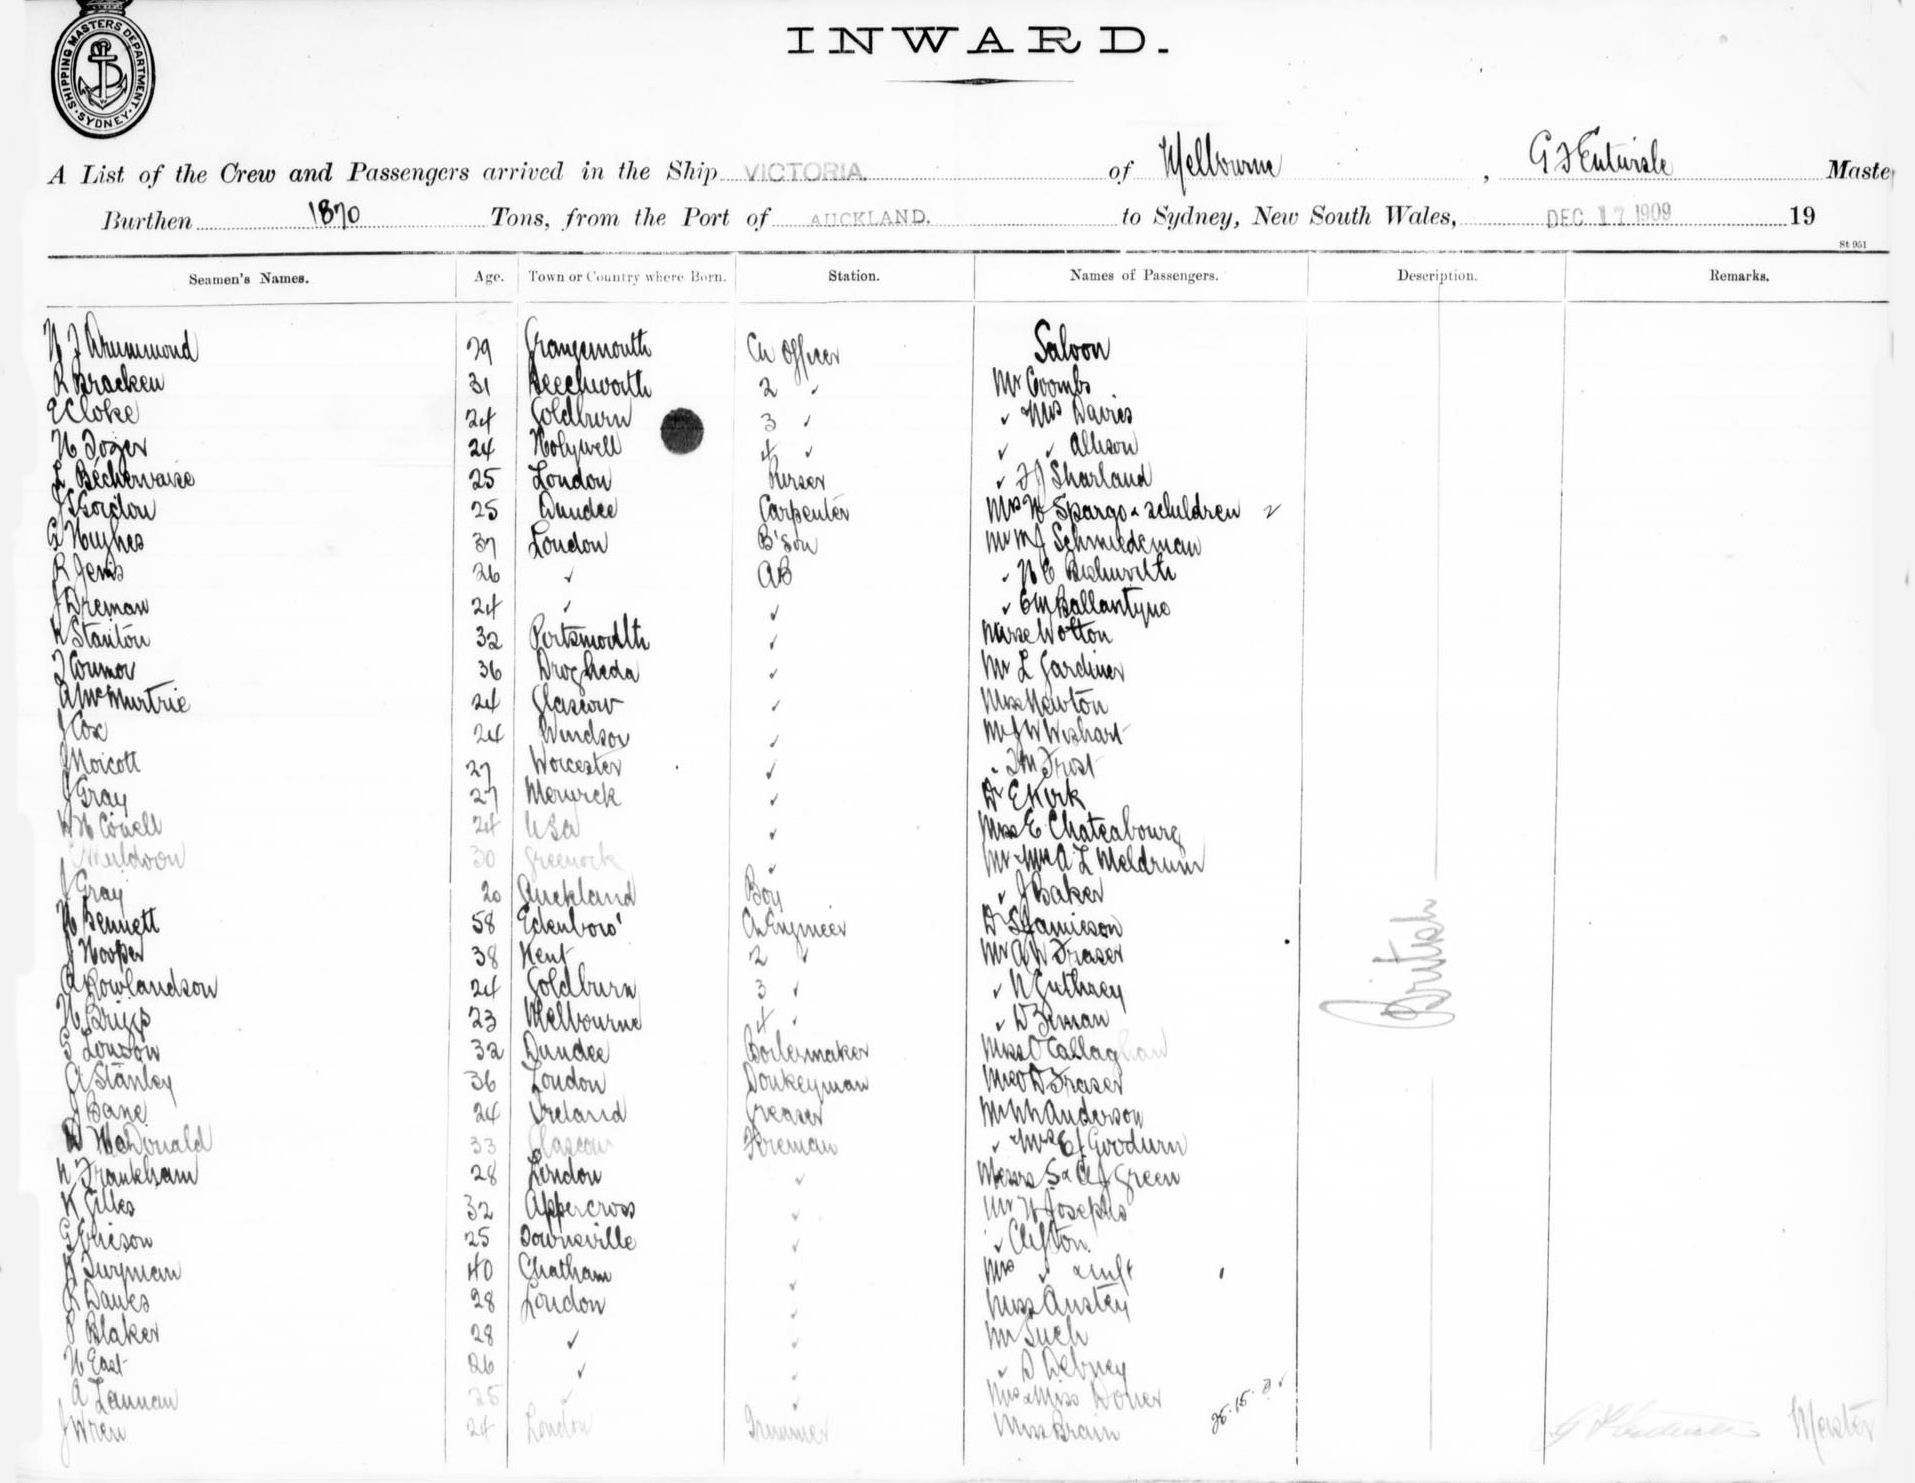 SHIPPING MASTERS DEPARTMENT
SYDNEY
INWARD.
A List of the Crew and Passengers arrived in the Ship VICTORIA. of Melbourne, G F Entwisle Master
Burthen 1870 Tons, from the Port of AUCKLAND. to Sydney, New South Wales, DEC 17 1909 19
St 951
Seamen's Names. Age. Town or Country where Born. Station. Names of Passengers. Description. Remarks.
Saloon
Drummond 29 Grangemouth Ch Officer
R Bracken 31 Beechworth 2 " Mr Coombs
E Cloke 24 Goldburn 3 " " Mrs Davies
H Tozer 24 Holywell 4 " " " Allison
L Becherwaise 25 London Purser " Sharland
J Gordon 25 Dundee Carpenter Mrs W Spargo & 2 children 2
G Hughes 37 London B'son Mr M J Schmiedeman
R 26 " AB "
24 " " " E M Ballantyne
Stanton 32 Portsmouth " Nurse Wotton
Connor 36 Drogheda " Mr L Gardiner
A McMurtrie 24 Glascow " Miss Newton
J Cox 24 Windsor " Mr J W Wishart
27 Worcester " " Frost
J Gray 27 " Dr E Kirk
Cowell 24 USA " Miss E Chateabourg
Muldoon 30 Greenock " Mr & Mrs A L Meldrum
J Gray 20 Auckland Boy " J Baker
H Bennett 58 Edenboro' Ch Engineer Dr S Jamieson
J Hooper 38 Kent 2 " Mr A W Fraser
A Rowlandson 24 Goldburn 3 "
H Briggs 23 Melbourne 4 " "
32 Dundee Boilermaker Miss O'Callaghan
A Stanley 36 London Donkeyman Fraser
J Bane 24 Ireland Greaser Anderson
D McDonald 33 Glascow Fireman " & Mrs E J
Frankham 28 London " Messrs S & A J Green
K Gilles 32 Appercross " Mr W Josephs
25 Townsville " " Clifton
Twyman 40 Chatham " Mrs " & inft
28 London " Miss Anstey
P Blaker 28 " " Mr Such
H East 26 " " " D Debney
A Lannan 25 " " Mrs & Miss
J Wren 24 London Trimmer Miss Brain
British
Master